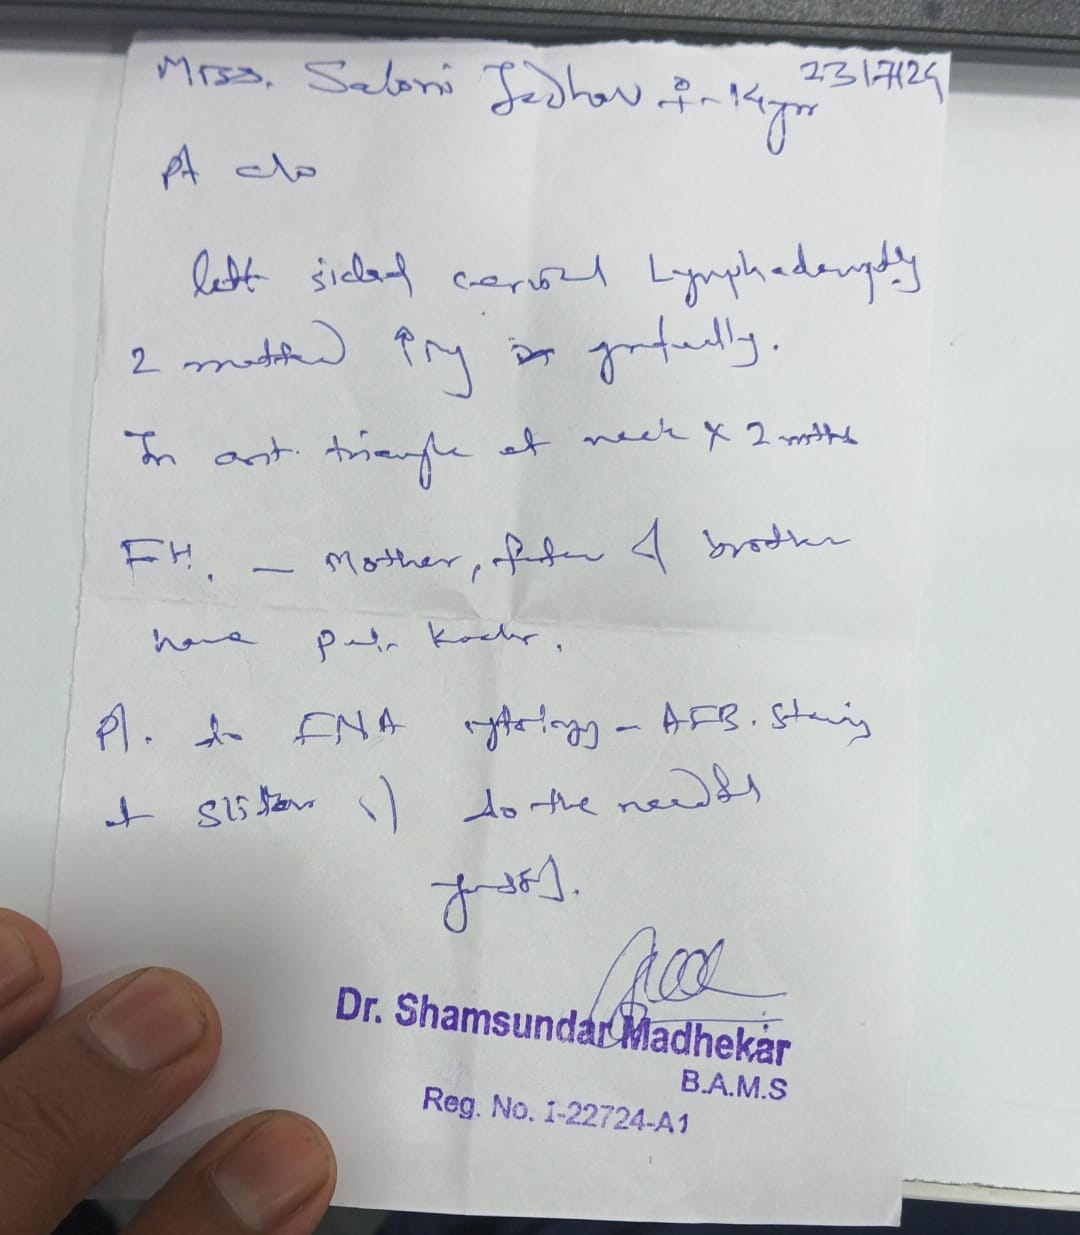 Miss. Saloni Jadhav ♀ - 14 yrs 23/7/24
Pt c/o
left sided cervical Lymphadenopathy
2 matted ↑ing gradually.
In ant. triangle of neck x 2 mths
FH. - Mother, father & brother
have pulm Koch's.
Pl. do FNA cytology - AFB. Staining
of do the needful
Dr. Shamsundar Madhekar
B.A.M.S
Reg. No. I-22724-A1